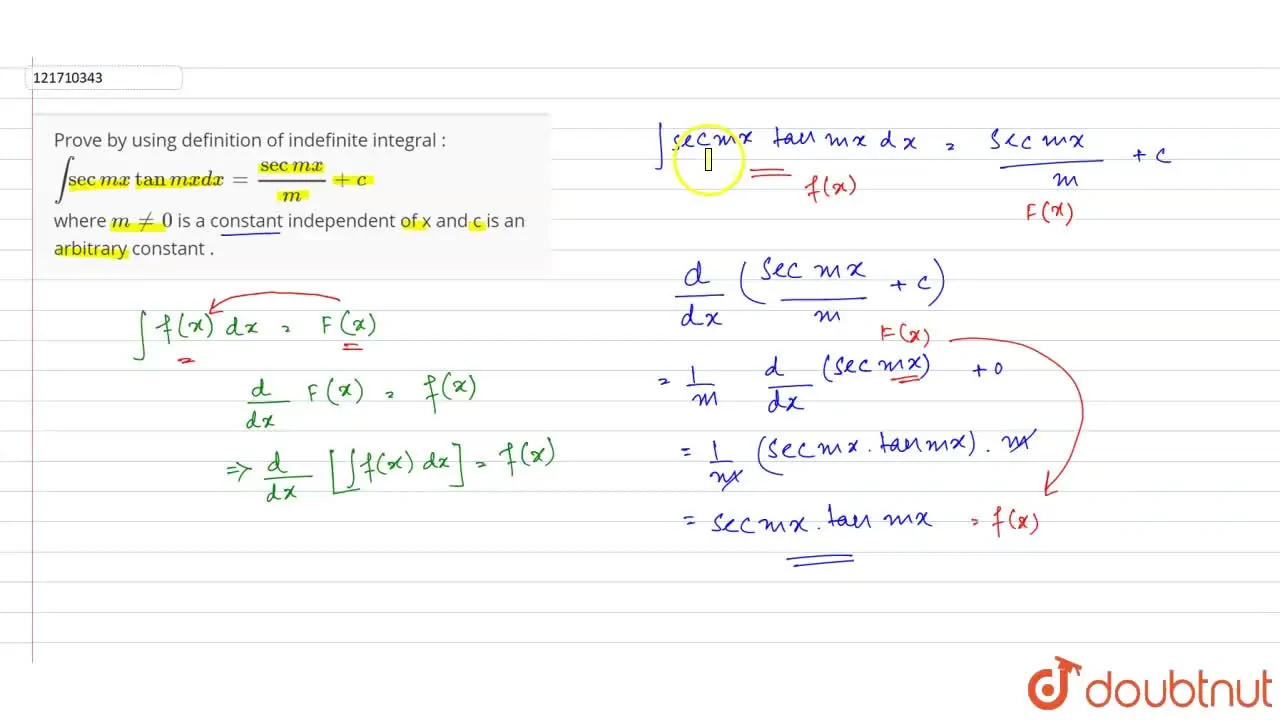 121710343
Prove by using definition of indefinite integral :
∫sec mx tan mxdx = sec mx / m + c
where m ≠ 0 is a constant independent of x and c is an
arbitrary constant .
∫ f(x) dx = F(x)
d/dx F(x) = f(x)
⇒ d/dx [∫ f(x) dx] = f(x)
∫ sec mx tan mx dx = sec mx / m + c
f(x)
F(x)
d/dx (sec mx / m + c)
F(x)
= 1/m d/dx (sec mx) + 0
= 1/m (sec mx . tan mx) . m
= sec mx . tan mx = f(x)
doubtnut